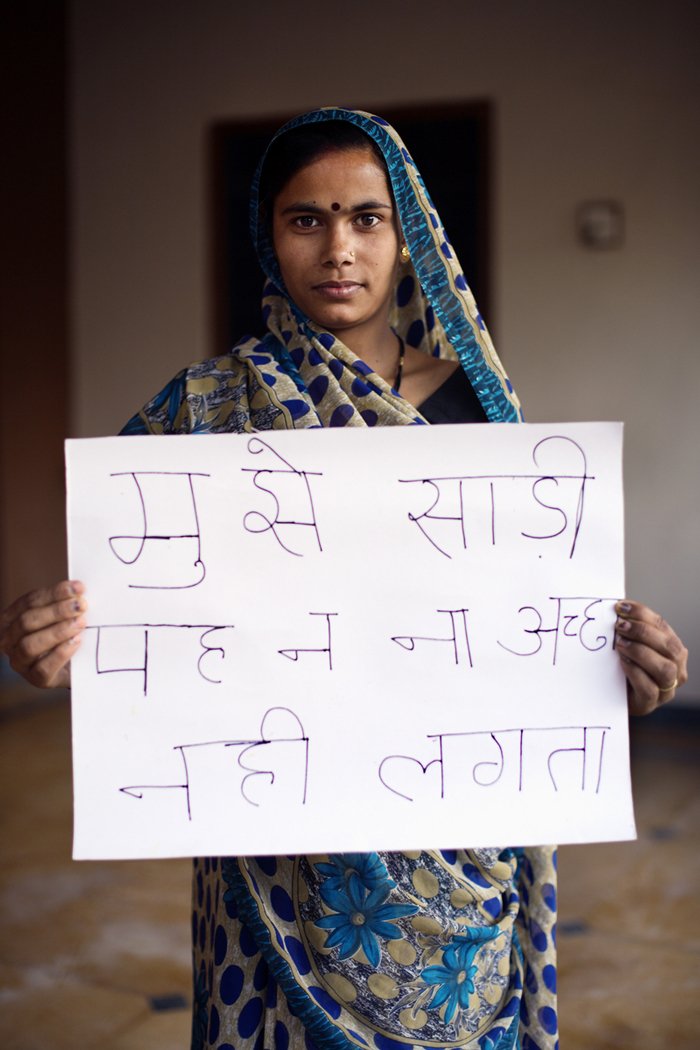 मुझे साड़ी
पहन ना अच्छा
नही लगता